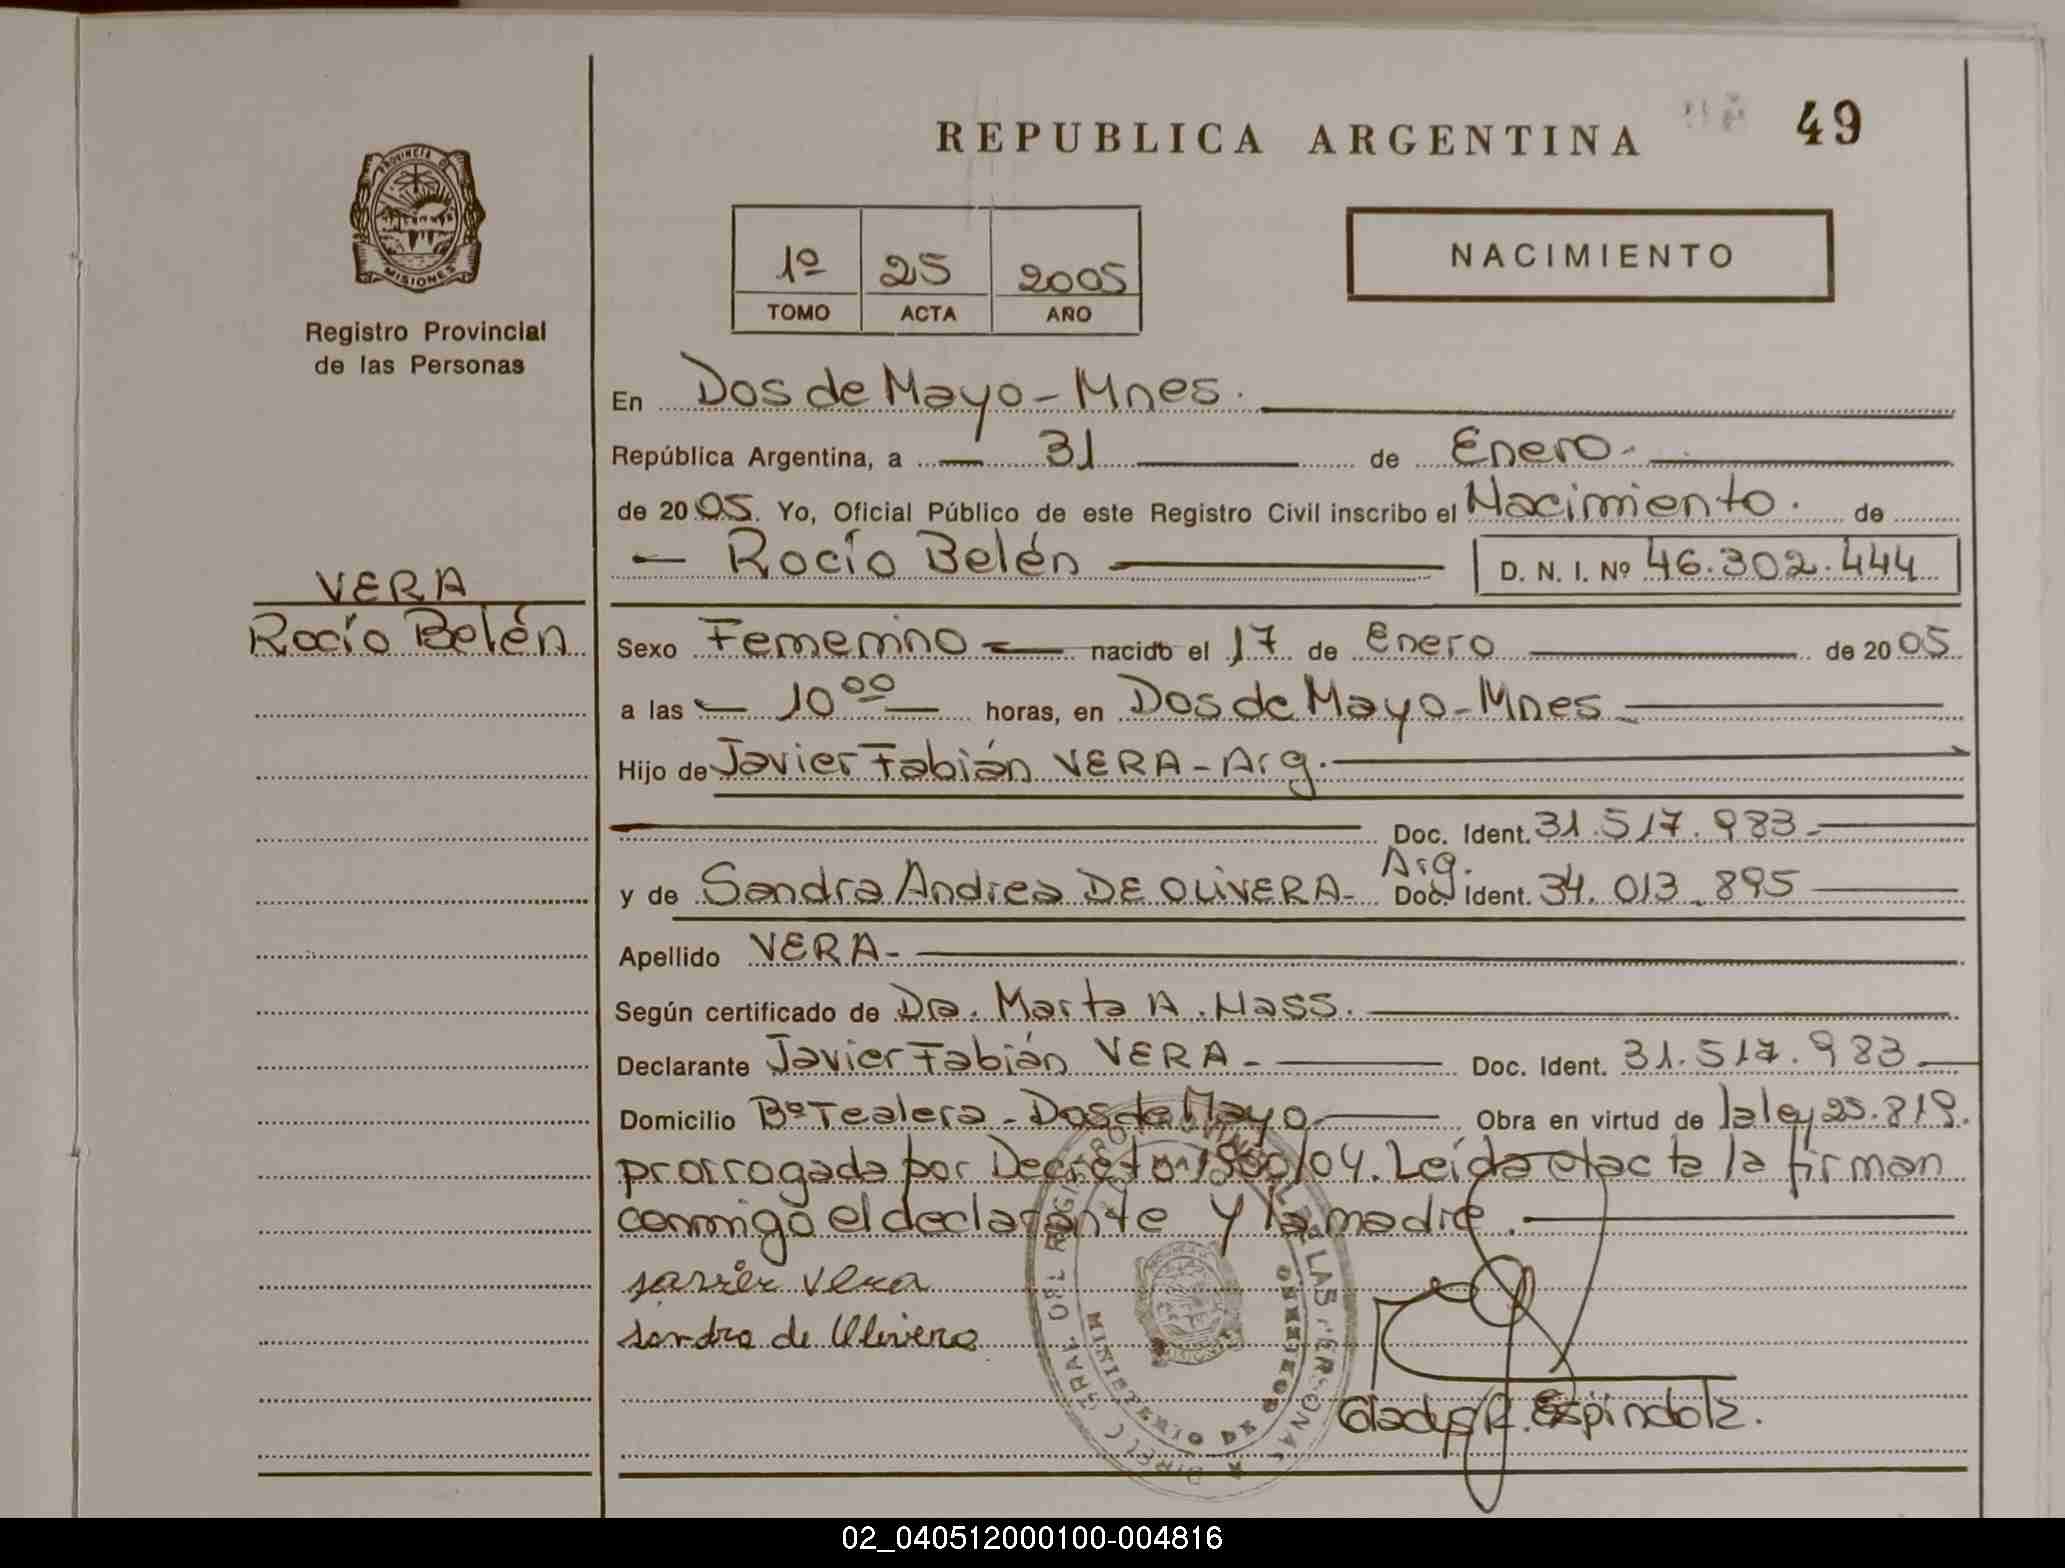 REPUBLICA ARGENTINA
49
PROVINCIA DE
MISIONES
Registro Provincial
de las Personas
1º 25 2005
TOMO ACTA AÑO
NACIMIENTO
En Dos de Mayo - Mnes.
República Argentina, a — 31 — de Enero. —
de 2005. Yo, Oficial Público de este Registro Civil inscribo el Nacimiento. de
— Rocío Belén —
D. N. I. Nº 46.302.444
VERA
Rocío Belén
Sexo Femenino — nacido el 17 de Enero — de 2005
a las — 10 00 — horas, en Dos de Mayo - Mnes —
Hijo de Javier Fabián VERA - Arg. —
Doc. Ident. 31.517.983 -
y de Sandra Andrea DE OLIVERA - Arg. Doc. Ident. 34.013.895
Apellido VERA -
Según certificado de Dra. Marta A. Hass.
Declarante Javier Fabián VERA - Doc. Ident. 31.517.983
Domicilio Bº Tealera - Dos de Mayo — Obra en virtud de la ley 25.819.
prorrogada por Decreto /04. Leída el acta la firman
conmigo el declarante y la madre.
javier vera
sandra de Olivera
REGISTRO PROVINCIAL DE LAS PERSONAS
MINISTERIO DE GOBIERNO
Gladys R. Espindola.
02_040512000100-004816